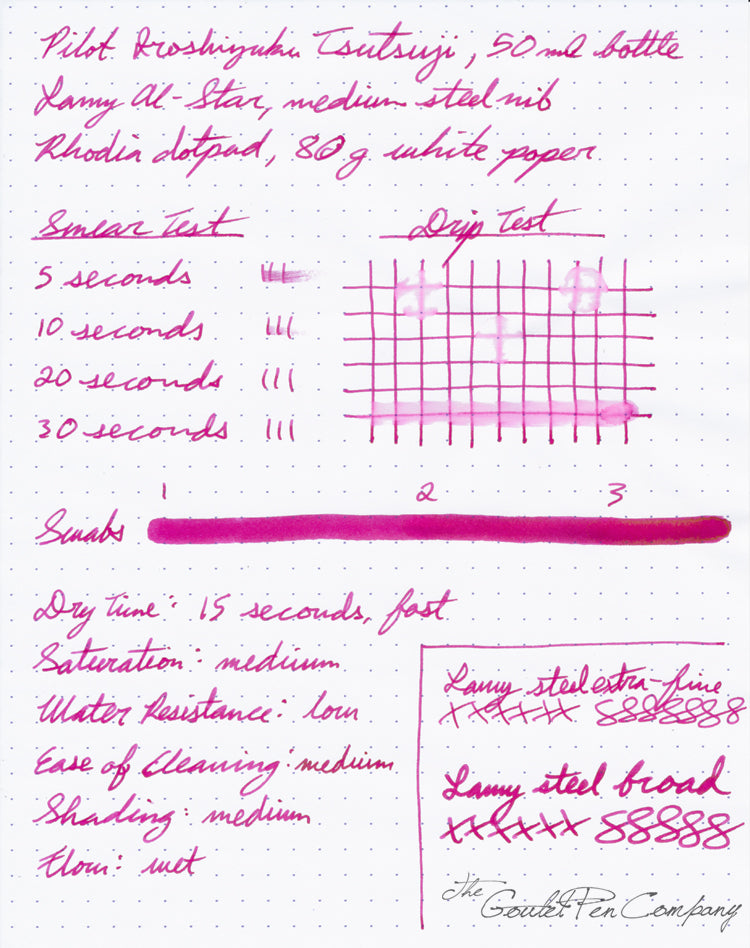 Pilot Iroshizuku Tsutsuji, 50 ml bottle
Lamy Al-Star, medium steel nib
Rhodia dotpad, 80 g white paper
Smear Test
Drip Test
5 seconds
10 seconds
20 seconds
30 seconds
1 2 3
Swabs
Dry Time: 15 seconds, fast
Saturation: medium
Water Resistance: low
Ease of Cleaning: medium
Shading: medium
Flow: wet
Lamy steel extra-fine
xxxxxxx 88888888
Lamy steel broad
xxxxxxx 88888
The Goulet Pen Company